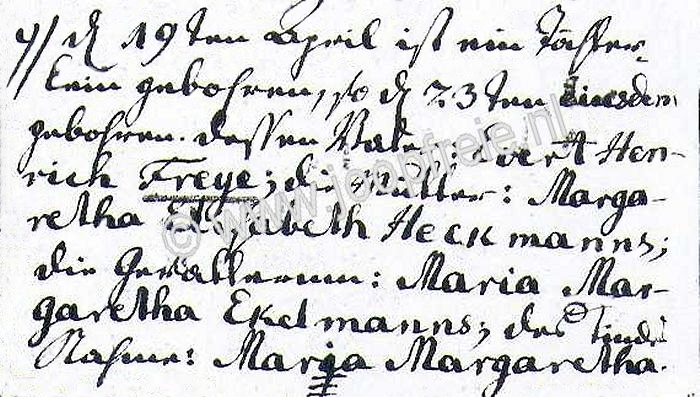 4) d 19ten April ist ein Töchter-
lein gebohren, so d 23ten eiusdem
gebohren. dessen Vater: Evert Hen-
rich Freye; die Mutter: Marga-
retha Elisabeth Heckmanns;
die Gevatterinn: Maria Mar-
garetha Ekelmanns; des Kindes
Nahme: Maria Margaretha.
© www.joopfreie.nl